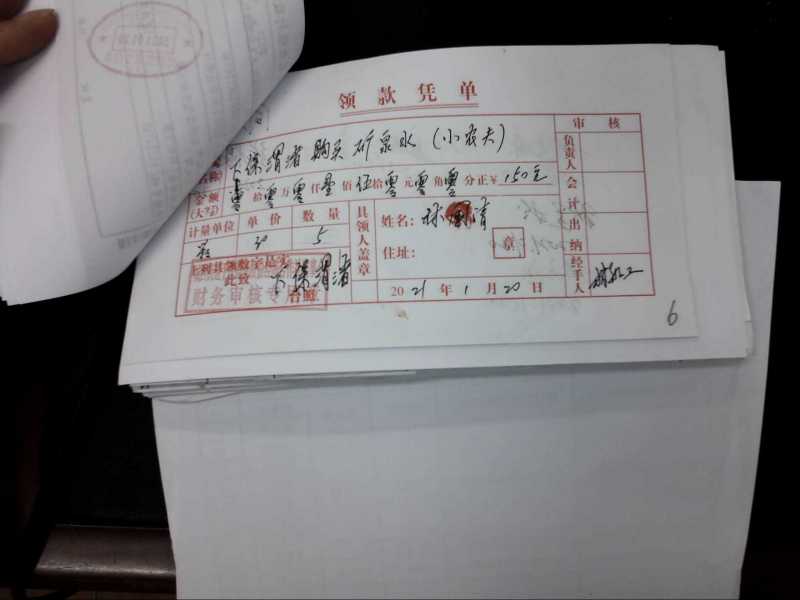 领款凭单
审核
名称 下保渭渚购买矿泉水(小农夫)
负责人
金额(大写) 零拾零万零仟壹佰伍拾零元零角零分正¥150元
会计
计量单位 单价 数量
具领人盖章
姓名:
出纳
30 5
住址:
章
上列其领数字是实
此致
下保渭渚
台照
财务审核专用
2021年1月20日
经手人
6